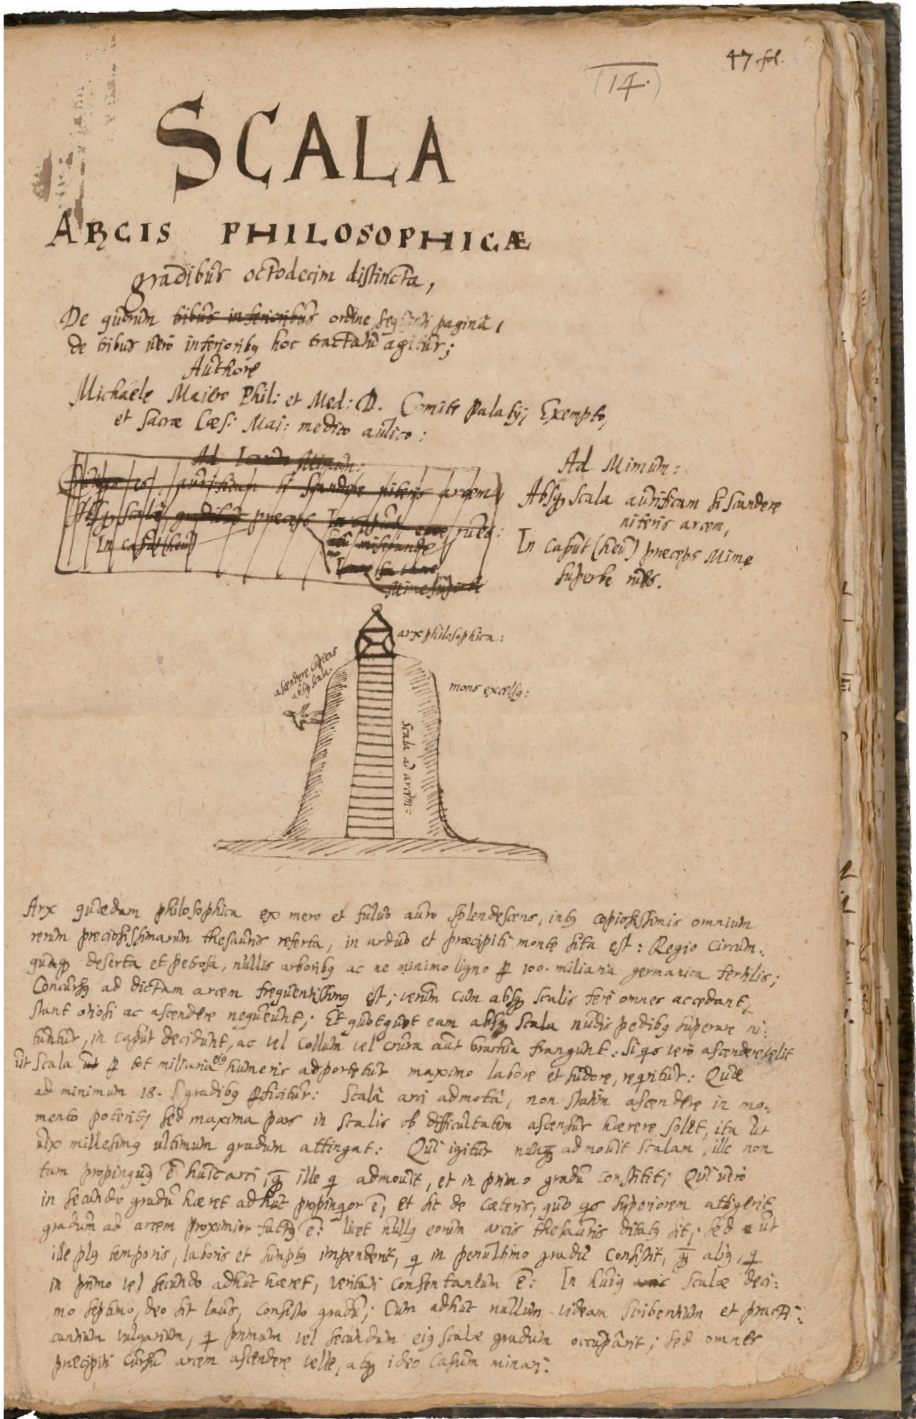 47 fol.
(14.)
SCALA
ARCIS PHILOSOPHICÆ
gradibus octodecim distincta,
De quorum tribus inferioribus ordine pagina,
de tribus vero inferiorib9 hoc tractatu agitur;
Authore
Michaele Maiero Phil: et Med: D. Comite Palat: Exempto,
et Sacræ Cæs: Mai: medico aulico:
Ad Mimum:
scandere niteris arcem
præceps In caput rues:
In caput (heu)
Mime superbe
Ad Mimum:
Absq3 scala aurificam si scandere
niteris arcem,
In caput (heu) præceps Mime
superbe rues.
arx philosophica:
ascendere cupiens
absq3 scala.
mons excels9:
Scala ad arcem:
Arx quædam philosophica ex mero et fulvo auro splendescens, int9 copiosissimis omnium
rerum preciosissimarum thesauris referta, in arduo et præcipiti monte sita est: Regio circum-
deserta et petrosa, nullis arborib9 ac ne minimo ligno p 100. miliaria germanica fertilis;
Concurs9 ad dictam arcem frequentissim9 est; verum cum absq3 scalis fere omnes accedant,
stant otiosi ac ascendere nequeunt; Et quotquot eam absq3 scala nudis pedib9 superare ni-
tuntur, in caput decidunt, ac vel collum vel crura aut brachia frangunt: Si q9s vero ascendere velit
ut scala p tot miliaria ei9 humeris adportetur maximo labore et sudore, reqritur: Quæ
ad minimum 18. gradib9 pficitur: Scala arci admota, non statim ascendere in mo-
mento poterit, sed maxima pars in scalis ob difficultatem ascensus hærere solet, ita ut
vix millesim9 ultimum gradum attingat: Qui igitur nunq3 admovit scalam, ille non
tam propinqu9 ē huic arci, ille q admovit, et in primo gradu constitit; Qui vero
in secundo gradu hæret adhuc propinqior ē, et sic de cæteris, quo q9s superiorem attigerit
gradum ad arcem proximior fact9 ē: licet null9 eorum arcis thesauris ditat9 sit; sed ut
ille pl9 temporis, laboris et sumpt9 impenderit, q in penultimo gradu consistit, ali9, q
in primo vel secundo adhuc hæret, veritati consentaneum ē: In hui9 scalæ deci-
mo septimo, deo sit laus, consisto gradu; Cum adhuc nullum videam scribentium et practi-
cantium vulgarium, q primum vel secundum ei9 scalæ gradum occuparit; sed omnes
præcipiti cursu arcem ascendere velle, atq3 ideo casum minari: